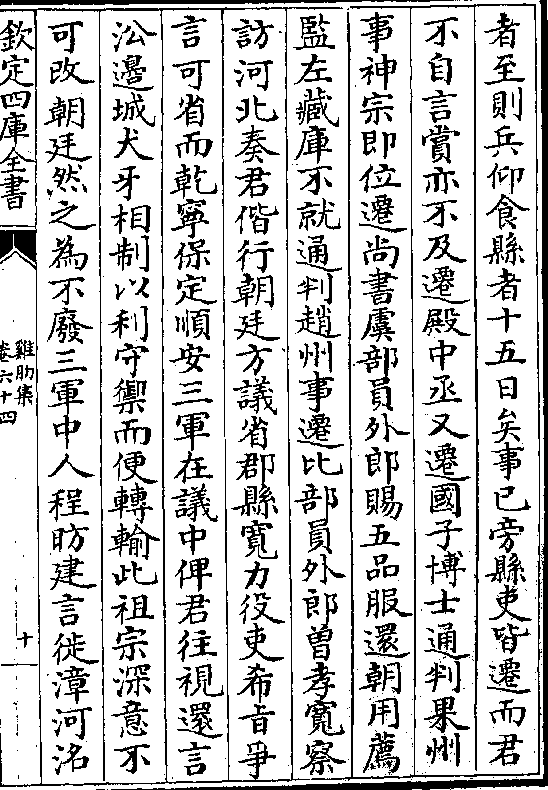 者至則兵仰食縣者十五日矣事已旁縣吏皆遷而君
不自言賞亦不及遷殿中丞又遷國子博士通判果州
事神宗即位遷尚書虞部員外郎賜五品服還朝用薦
監左藏庫不就通判趙州事遷比部員外郎曾孝寬察
訪河北奏君偕行朝廷方議省郡縣寬力役吏希旨爭
言可省而乾寧保定順安三軍在議中俾君往視還言
㳂邊城犬牙相制以利守禦而便轉輸此祖宗深意不
可改朝廷然之為不廢三軍中人程昉建言徙漳河洺
欽定四庫全書
雞肋集
卷六十四
十